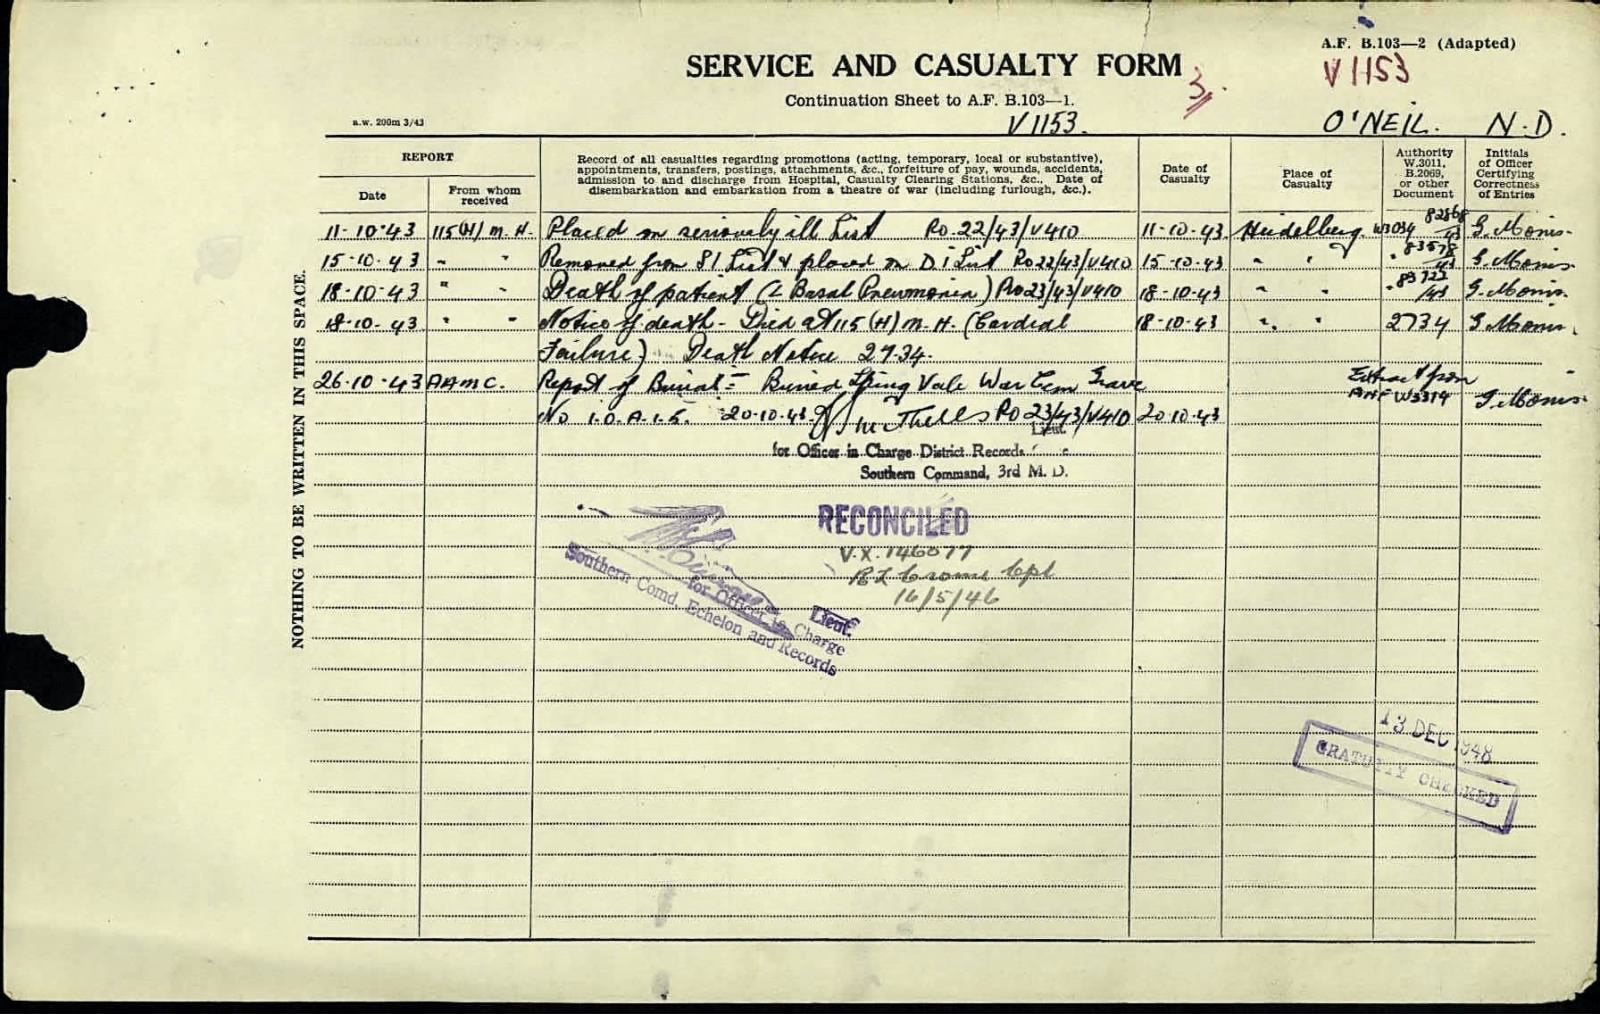 A.F. B.103—2 (Adapted)
V1153
SERVICE AND CASUALTY FORM
3
Continuation Sheet to A.F. B.103—1.
a.w. 200m 3/43
V1153. O'NEIL. N.D.
REPORT
Date
From whom received
Record of all casualties regarding promotions (acting, temporary, local or substantive),
appointments, transfers, postings, attachments, &c., forfeiture of pay, wounds, accidents,
admission to and discharge from Hospital, Casualty Clearing Stations, &c. Date of
disembarkation and embarkation from a theatre of war (including furlough, &c.).
Date of Casualty
Place of Casualty
Authority W.3011, B.2069, or other Document
Initials of Officer Certifying Correctness of Entries
11-10-43 115(H) M.H. Placed on seriously ill List Ro.22/43/V410 11-10-43 Heidelberg. W3034 82868/43 G. Morris.
15-10-43 " " Removed from SI List & placed on D.i List Ro22/43/V410 15-10-43 " " " 83578/43 G. Morris
18-10-43 " " Death of patient (L Basal Pneumonia) Ro23/43/V410 18-10-43 " " " 83722/43 G. Morris.
18-10-43 " " Notice of death - Died at 115(H) M.H. (Cardial 18-10-43 " " 2734 G Morris.
Failure) Death Notice 2734.
26-10-43 AAMC. Report of Burial:= Buried Spring Vale War Cem Grave Extract from
No 1.O.A.15. 20-10-43. Ro 23/43/V410 20-10-43 AHF W3314 G Morris.
Lieut.
for Officer in Charge District Records
Southern Command, 3rd M. D.
RECONCILED
V.X. 146077
Cpl
16/5/46
Lieut.
for Officer in Charge
Southern Comd, Echelon and Records
13 DEC 1948
GRATUITY CHECKED
NOTHING TO BE WRITTEN IN THIS SPACE.